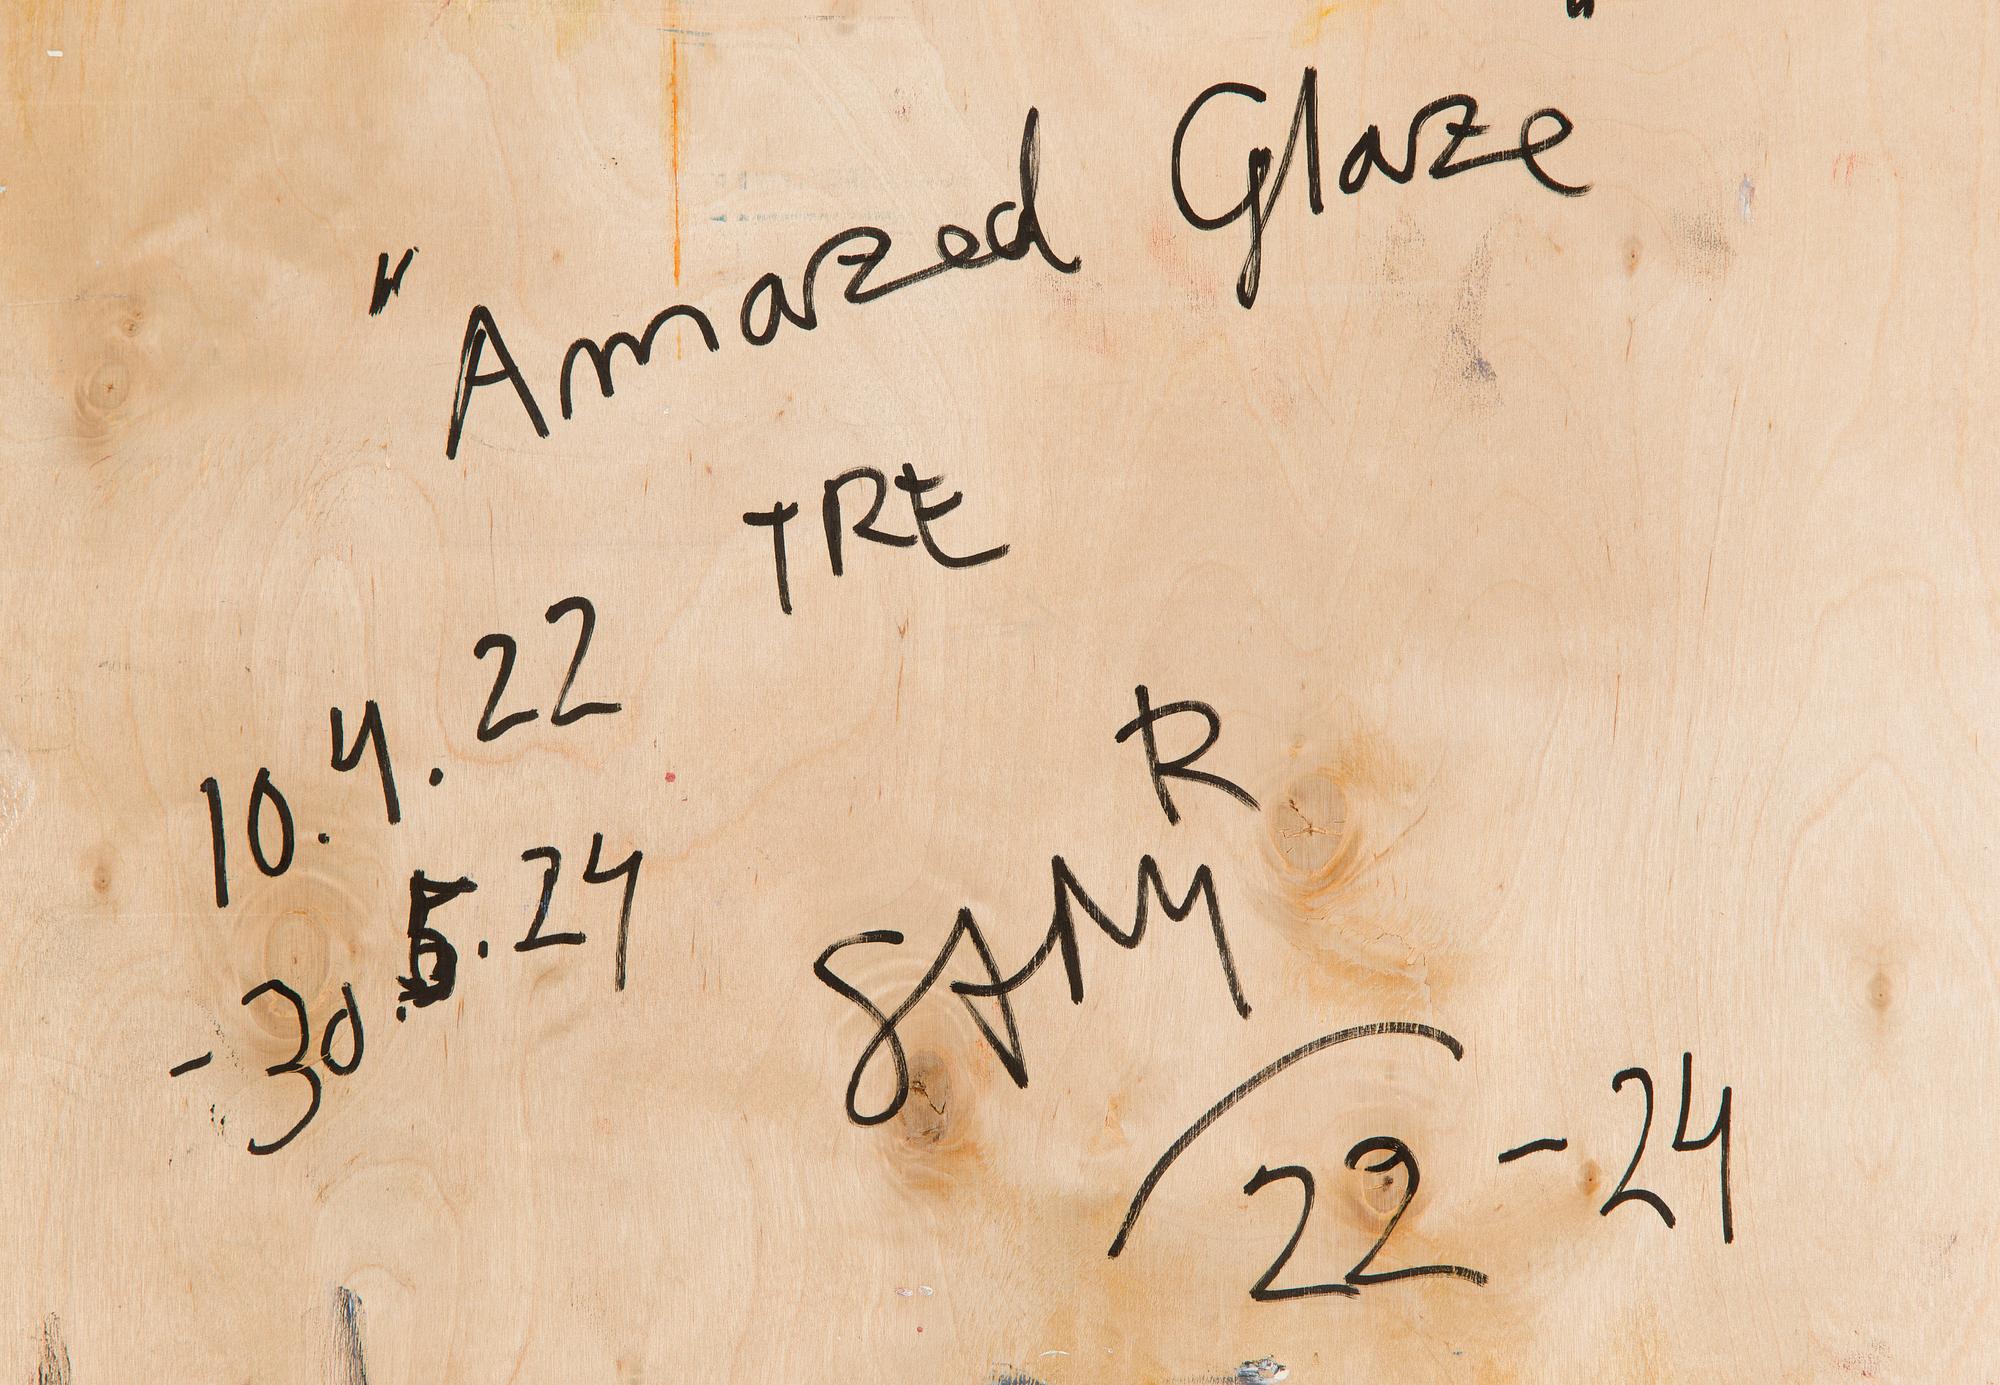 "Amazed Glaze"
TRE
10.4.22
-30.5.24
R
SAM
22-24